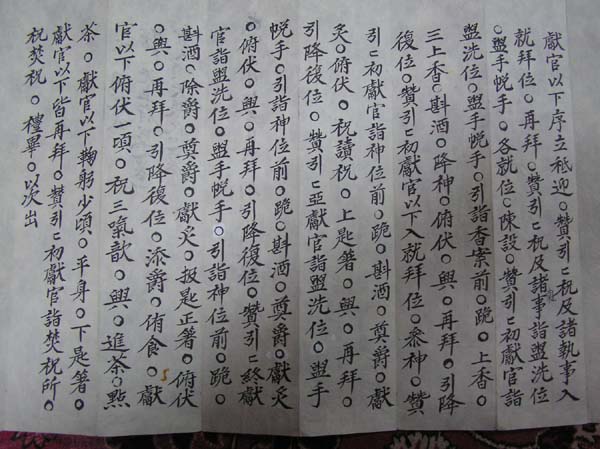 獻官以下序立祗迎○贊引ᄃ祝及諸執事入
就拜位○再拜○贊引ᄃ祝及諸事詣盥洗位
○盥手帨手○各就位○陳設○贊引ᄃ初獻官詣
盥洗位○盥手帨手○引詣香案前○跪○上香○
三上香○斟酒○降神○俯伏○興○再拜○引降
復位○贊引ᄃ初獻官以下入就拜位○叅神○贊
引ᄃ初獻官詣神位前○跪○斟酒○奠爵○獻
炙○俯伏○祝讀祝○上匙箸○興○再拜○
引降復位○贊引ᄃ亞獻官詣盥洗位○盥手
帨手○引詣神位前○跪○斟酒○奠爵○獻炙
○俯伏○興○再拜○引降復位○贊引ᄃ終獻
官詣盥洗位○盥手帨手○引詣神位前○跪○
斟酒○除爵○奠爵○獻炙○扱匙正箸○俯伏
○興○再拜○引降復位○添爵○侑食○獻
官以下俯伏一頃○祝三氣歆○興○進茶○點
茶○獻官以下鞠躬少頃○平身○下匙箸○
獻官以下皆再拜○贊引ᄃ初獻官詣焚祝所○
祝焚祝○禮畢○以次出